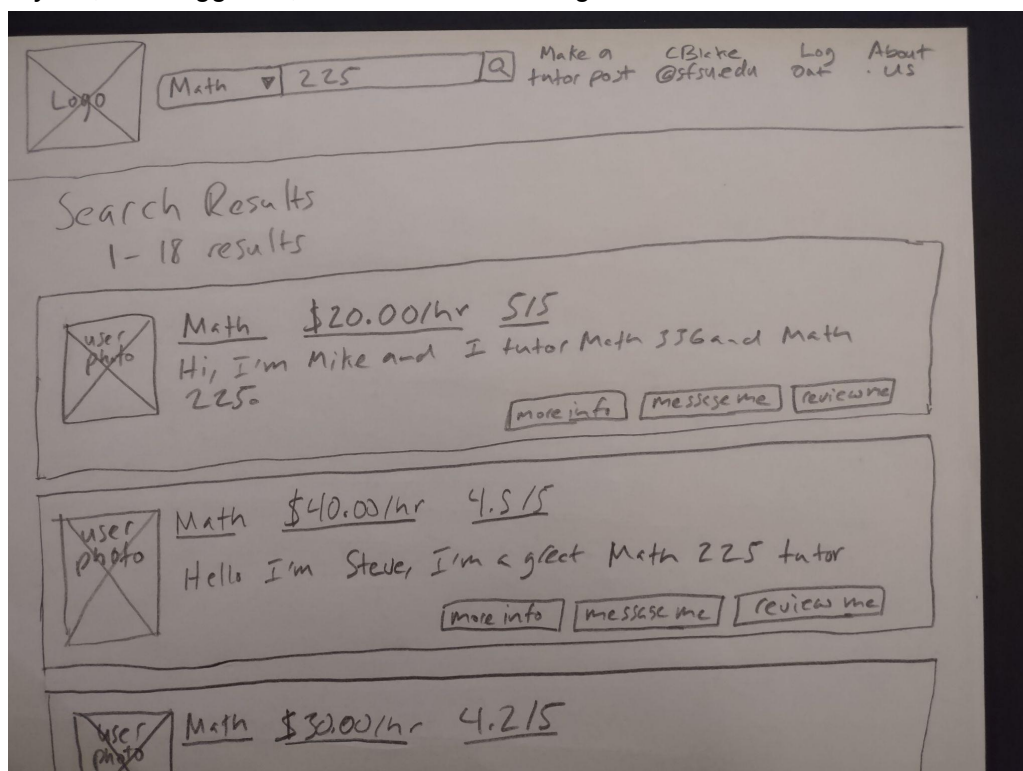 Logo
Math ▼ 225
Make a tutor post
CBlake @sfsu.edu
Log Out
About us
Search Results
1 - 18 results
user photo
Math $20.00/hr 5/5
Hi, I'm Mike and I tutor Math 336 and Math
225.
more info message me review me
user photo
Math $40.00/hr 4.5/5
Hello I'm Steve, I'm a great Math 225 tutor
more info message me review me
user photo
Math $30.00/hr 4.2/5